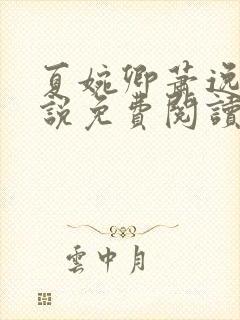 夏婉卿蕭逸
說免費閱讀
雲中月